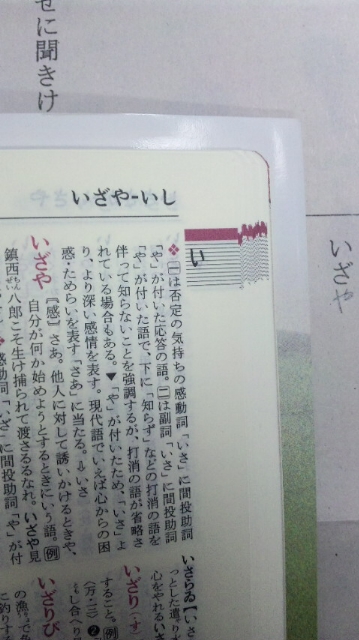 せに聞きけ
いざや
いざやーいし
い
❖㊀は否定の気持ちの感動詞「いさ」に間投助詞
「や」が付いた応答の語。㊁は副詞「いさ」に間投助詞
「や」が付いた語で、下に「知らず」などの打消の語を
伴って知らないことを強調するが、打消の語が省略さ
れている場合もある。▼「や」が付いたため、「いさ」よ
り、より深い感情を表す。現代語でいえば心からの困
感・ためらいを表す「さあ」に当たる。⇩いさ
いざや『感』さあ。他人に対して誘いかけるときや、
自分が何か始めようとするときにいう語。例
鎮西八郎こそ生け捕られて渡さるるなれ。いざや見
感動詞「いざ」に間投助詞「や」が付
いさらゐ【い
っとした遣り
心をやれるいさ
いさり《す
すること。例
〈万・三〉❷
いざりび
の漁